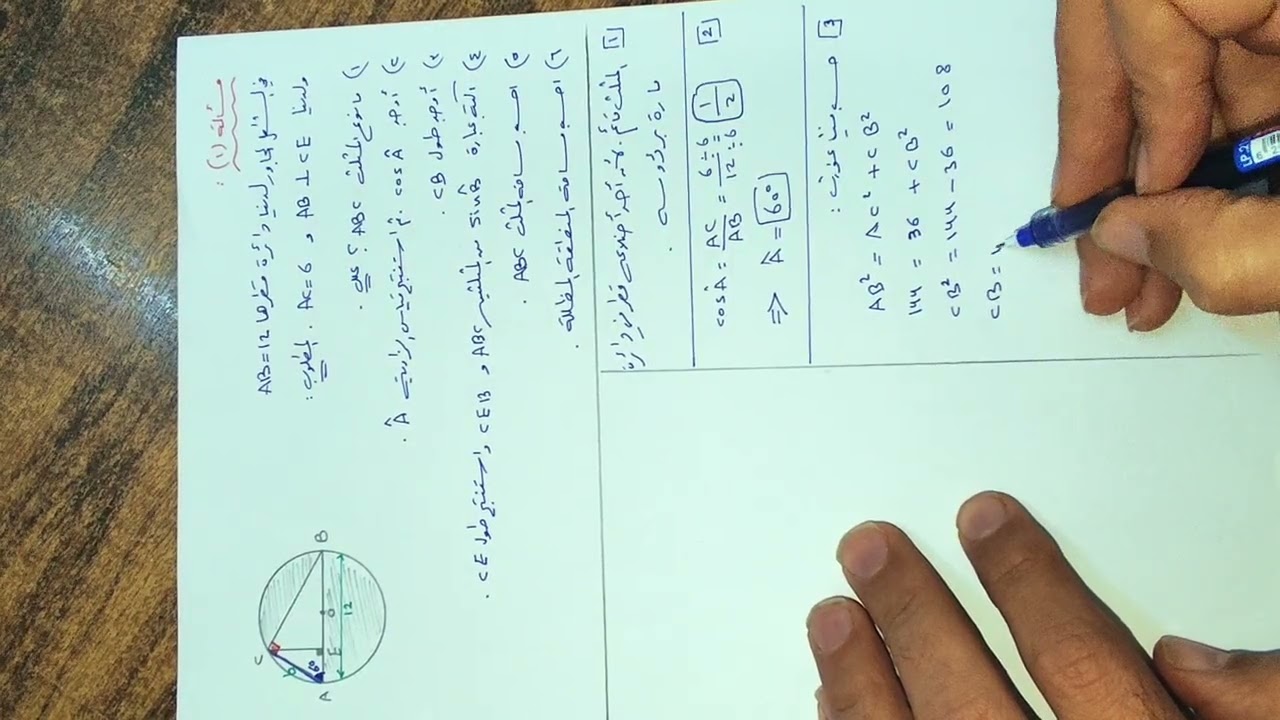 مسألة (١) :
في الشكل المجاور لدينا دائرة قطرها AB = 12
ولدينا AB ⊥ CE و AC = 6 . المطلوب :
١) ما نوع المثلث ABC ؟ علل .
٢) أوجد cos Â ثم استنتج قياس الزاوية Â .
٣) أوجد طول CB .
٤) اكتب عبارة sin B̂ من المثلثين ABC و CEB واستنتج طول CE .
٥) احسب مساحة المثلث ABC .
٦) احسب مساحة المنطقة المظللة .
C
6
60
A
E
O
B
12
[١] المثلث قائم لأنه أحد أضلاعه قطر في دائرة
مارة برؤوسه .
[٢] cos Â = AC/AB = 6÷6/12÷6 = 1/2
=> Â = 60°
[٣] حسب فيثاغورث :
AB² = AC² + CB²
144 = 36 + CB²
CB² = 144 - 36 = 108
CB =